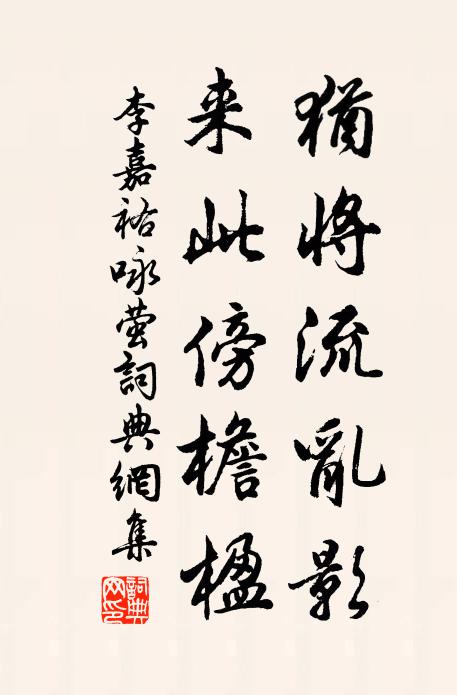 猶將流亂影
来此傍檐楹
李嘉祐咏萤詞典網集
詞典網印